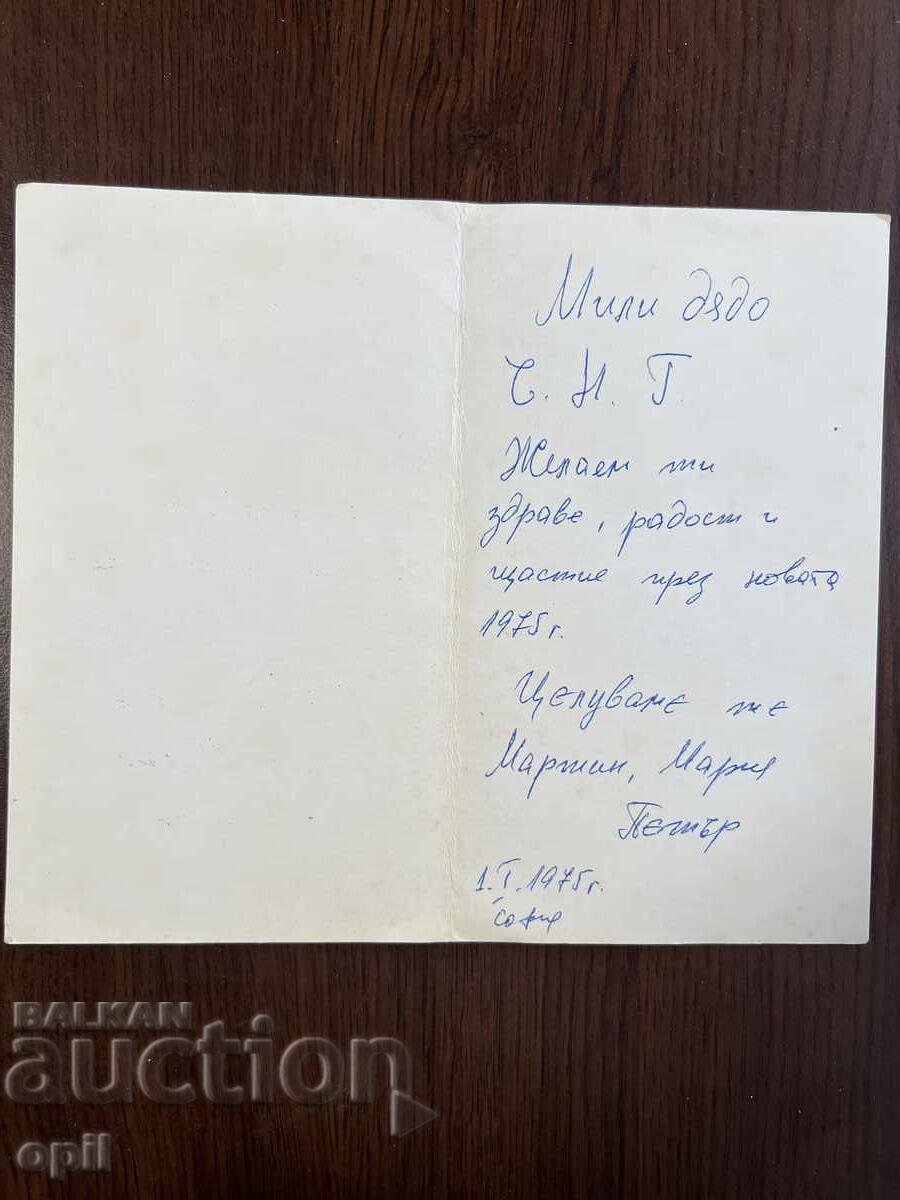 Мили дядо
Ч. Н. Г.
Желаем ти
здраве, радост и
щастие през новата
1975 г.
Целуваме те
Мартин, Мария
Петър
1.I.1975 г.
София
BALKAN
auction
opil